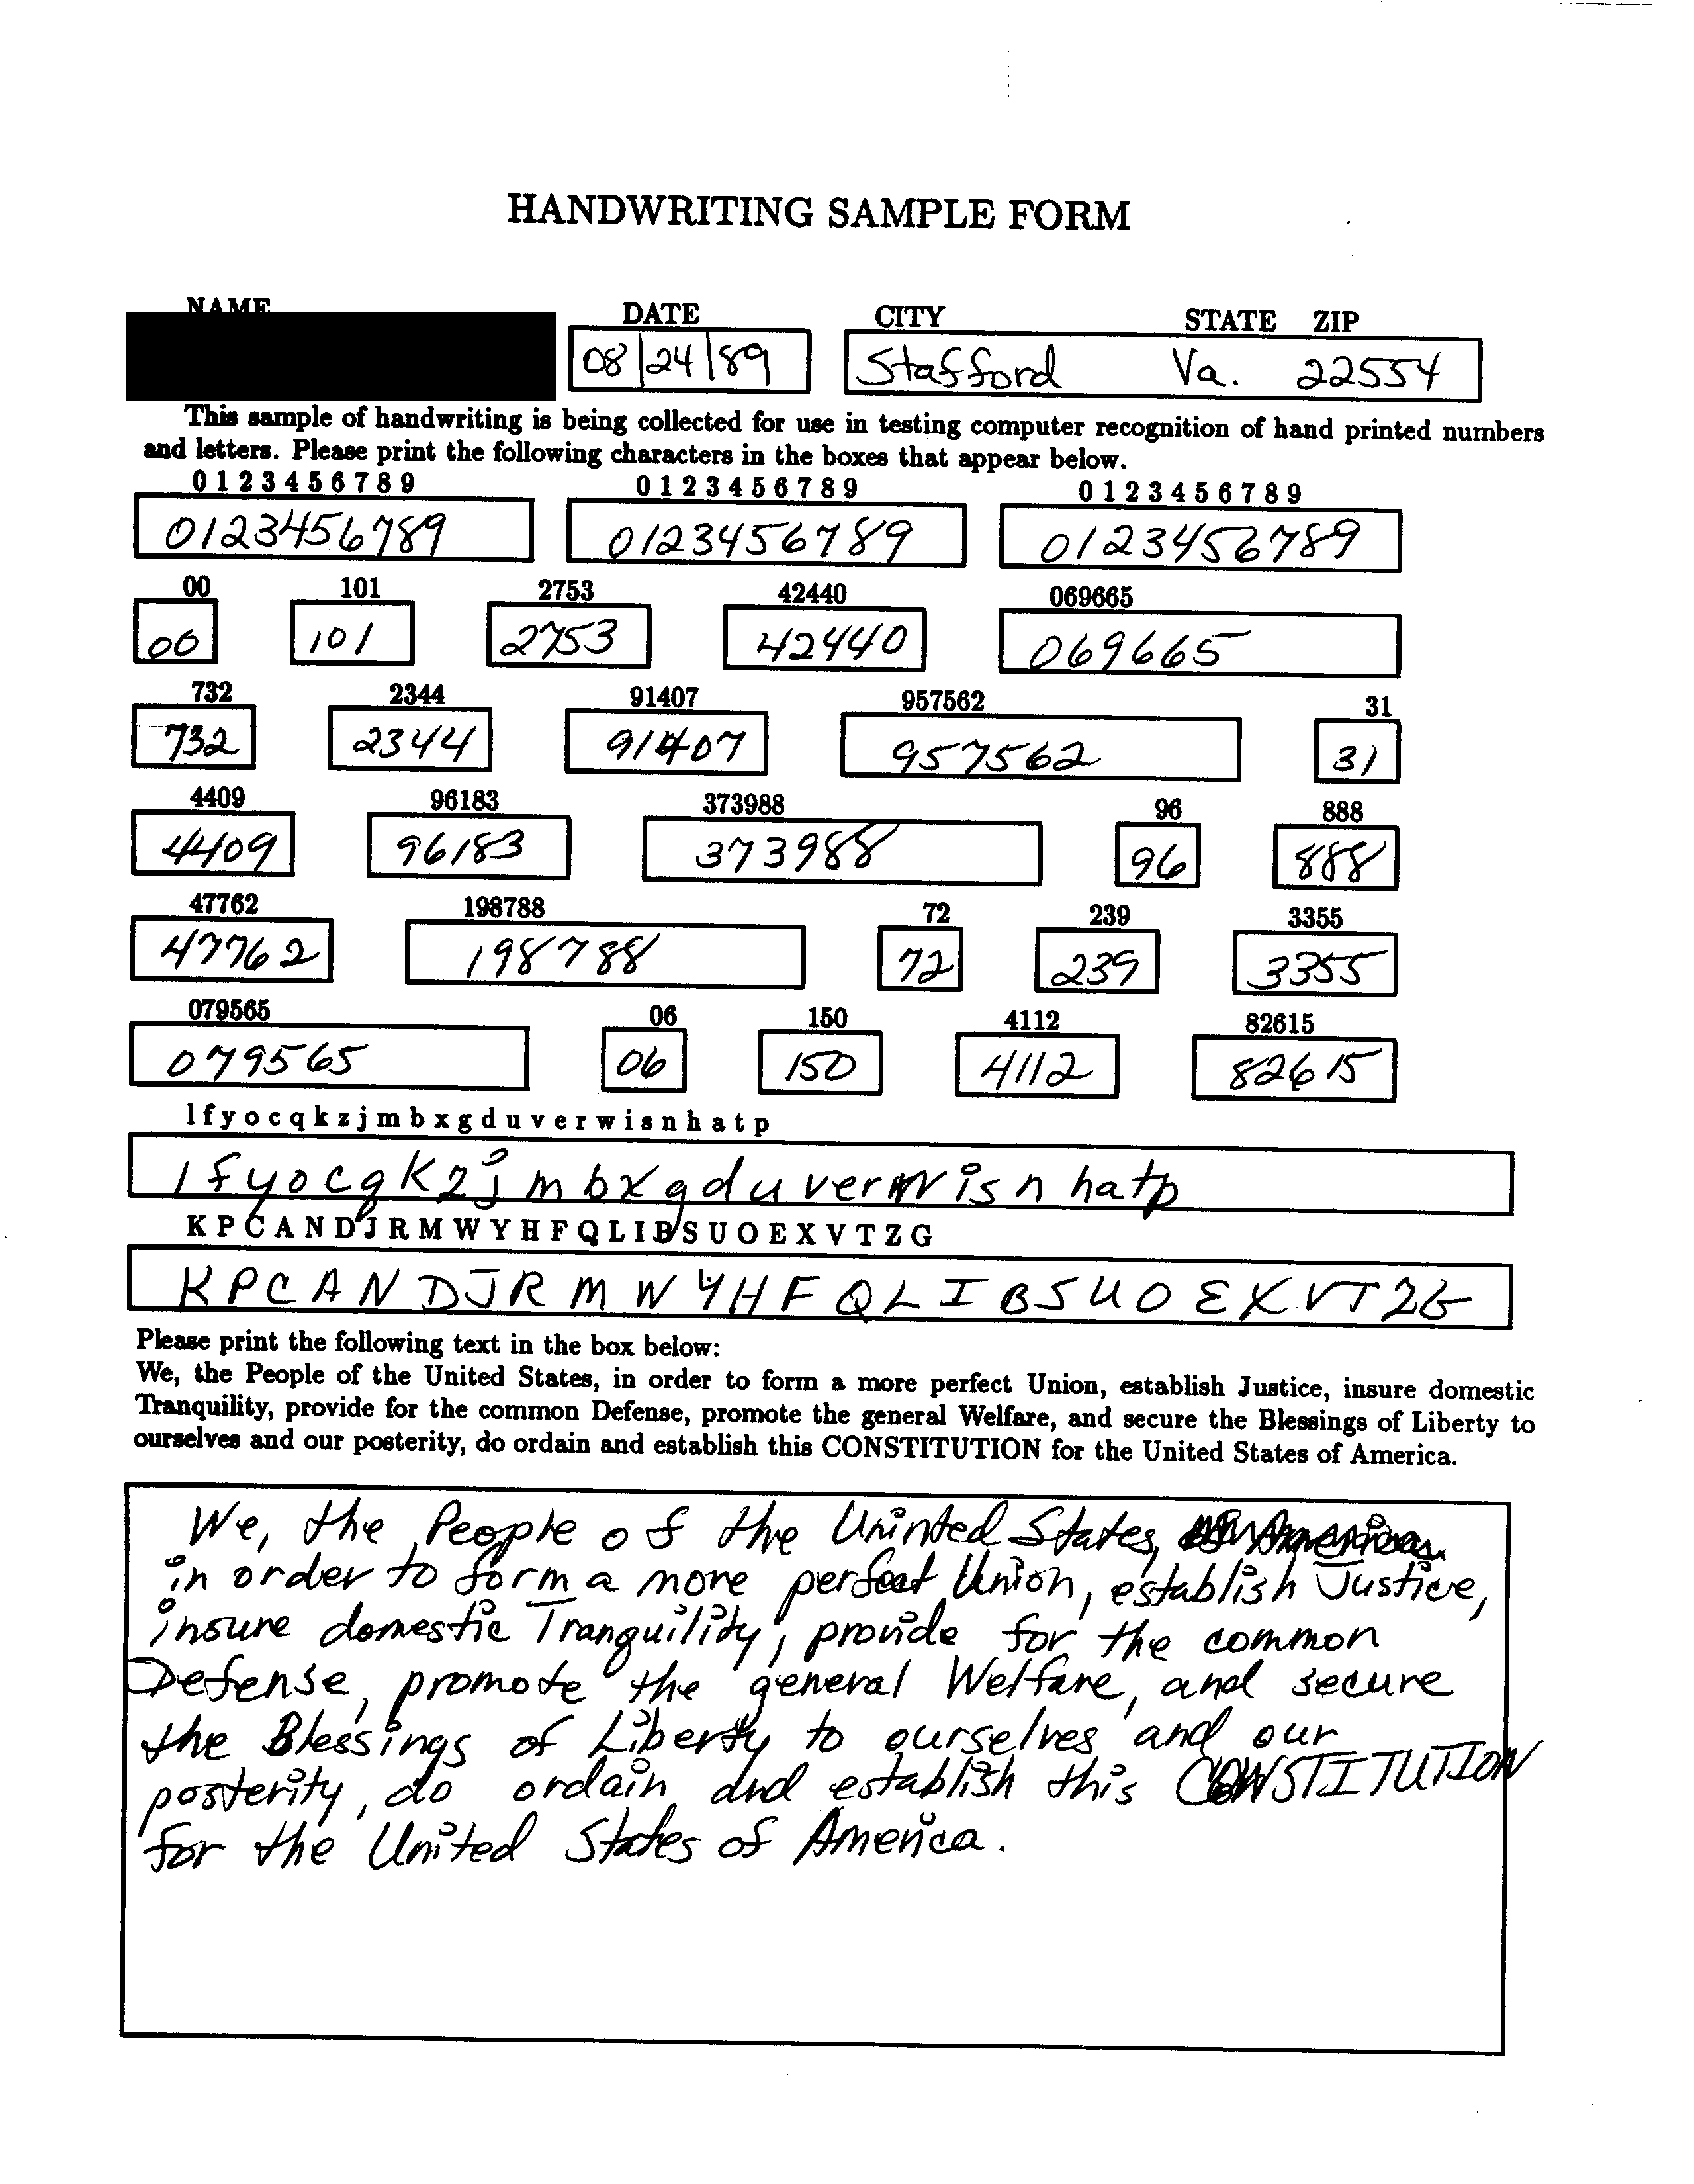 HANDWRITING SAMPLE FORM
NAME DATE CITY STATE ZIP
08/24/89 Stafford Va. 22554
This sample of handwriting is being collected for use in testing computer recognition of hand printed numbers
and letters. Please print the following characters in the boxes that appear below.
0 1 2 3 4 5 6 7 8 9 0 1 2 3 4 5 6 7 8 9 0 1 2 3 4 5 6 7 8 9
0123456789 0123456789 0123456789
00 101 2753 42440 069665
00 101 2753 42440 069665
732 2344 91407 957562 31
732 2344 91407 957562 31
4409 96183 373988 96 888
4409 96183 373988 96 888
47762 198788 72 239 3355
47762 198788 72 239 3355
079565 06 150 4112 82615
079565 06 150 4112 82615
l f y o c q k z j m b x g d u v e r w i s n h a t p
l f y o c q k z j m b x g d u v e r w i s n h a t p
K P C A N D J R M W Y H F Q L I B S U O E X V T Z G
K P C A N D J R M W Y H F Q L I B S U O E X V T Z G
Please print the following text in the box below:
We, the People of the United States, in order to form a more perfect Union, establish Justice, insure domestic
Tranquility, provide for the common Defense, promote the general Welfare, and secure the Blessings of Liberty to
ourselves and our posterity, do ordain and establish this CONSTITUTION for the United States of America.
We, the People of the Uninted States,
in order to form a more perfect Union, establish Justice,
insure domestic Tranquility, provide for the common
Defense, promote the general Welfare, and secure
the Blessings of Liberty to ourselves and our
posterity, do ordain and establish this CONSTITUTION
for the United States of America.